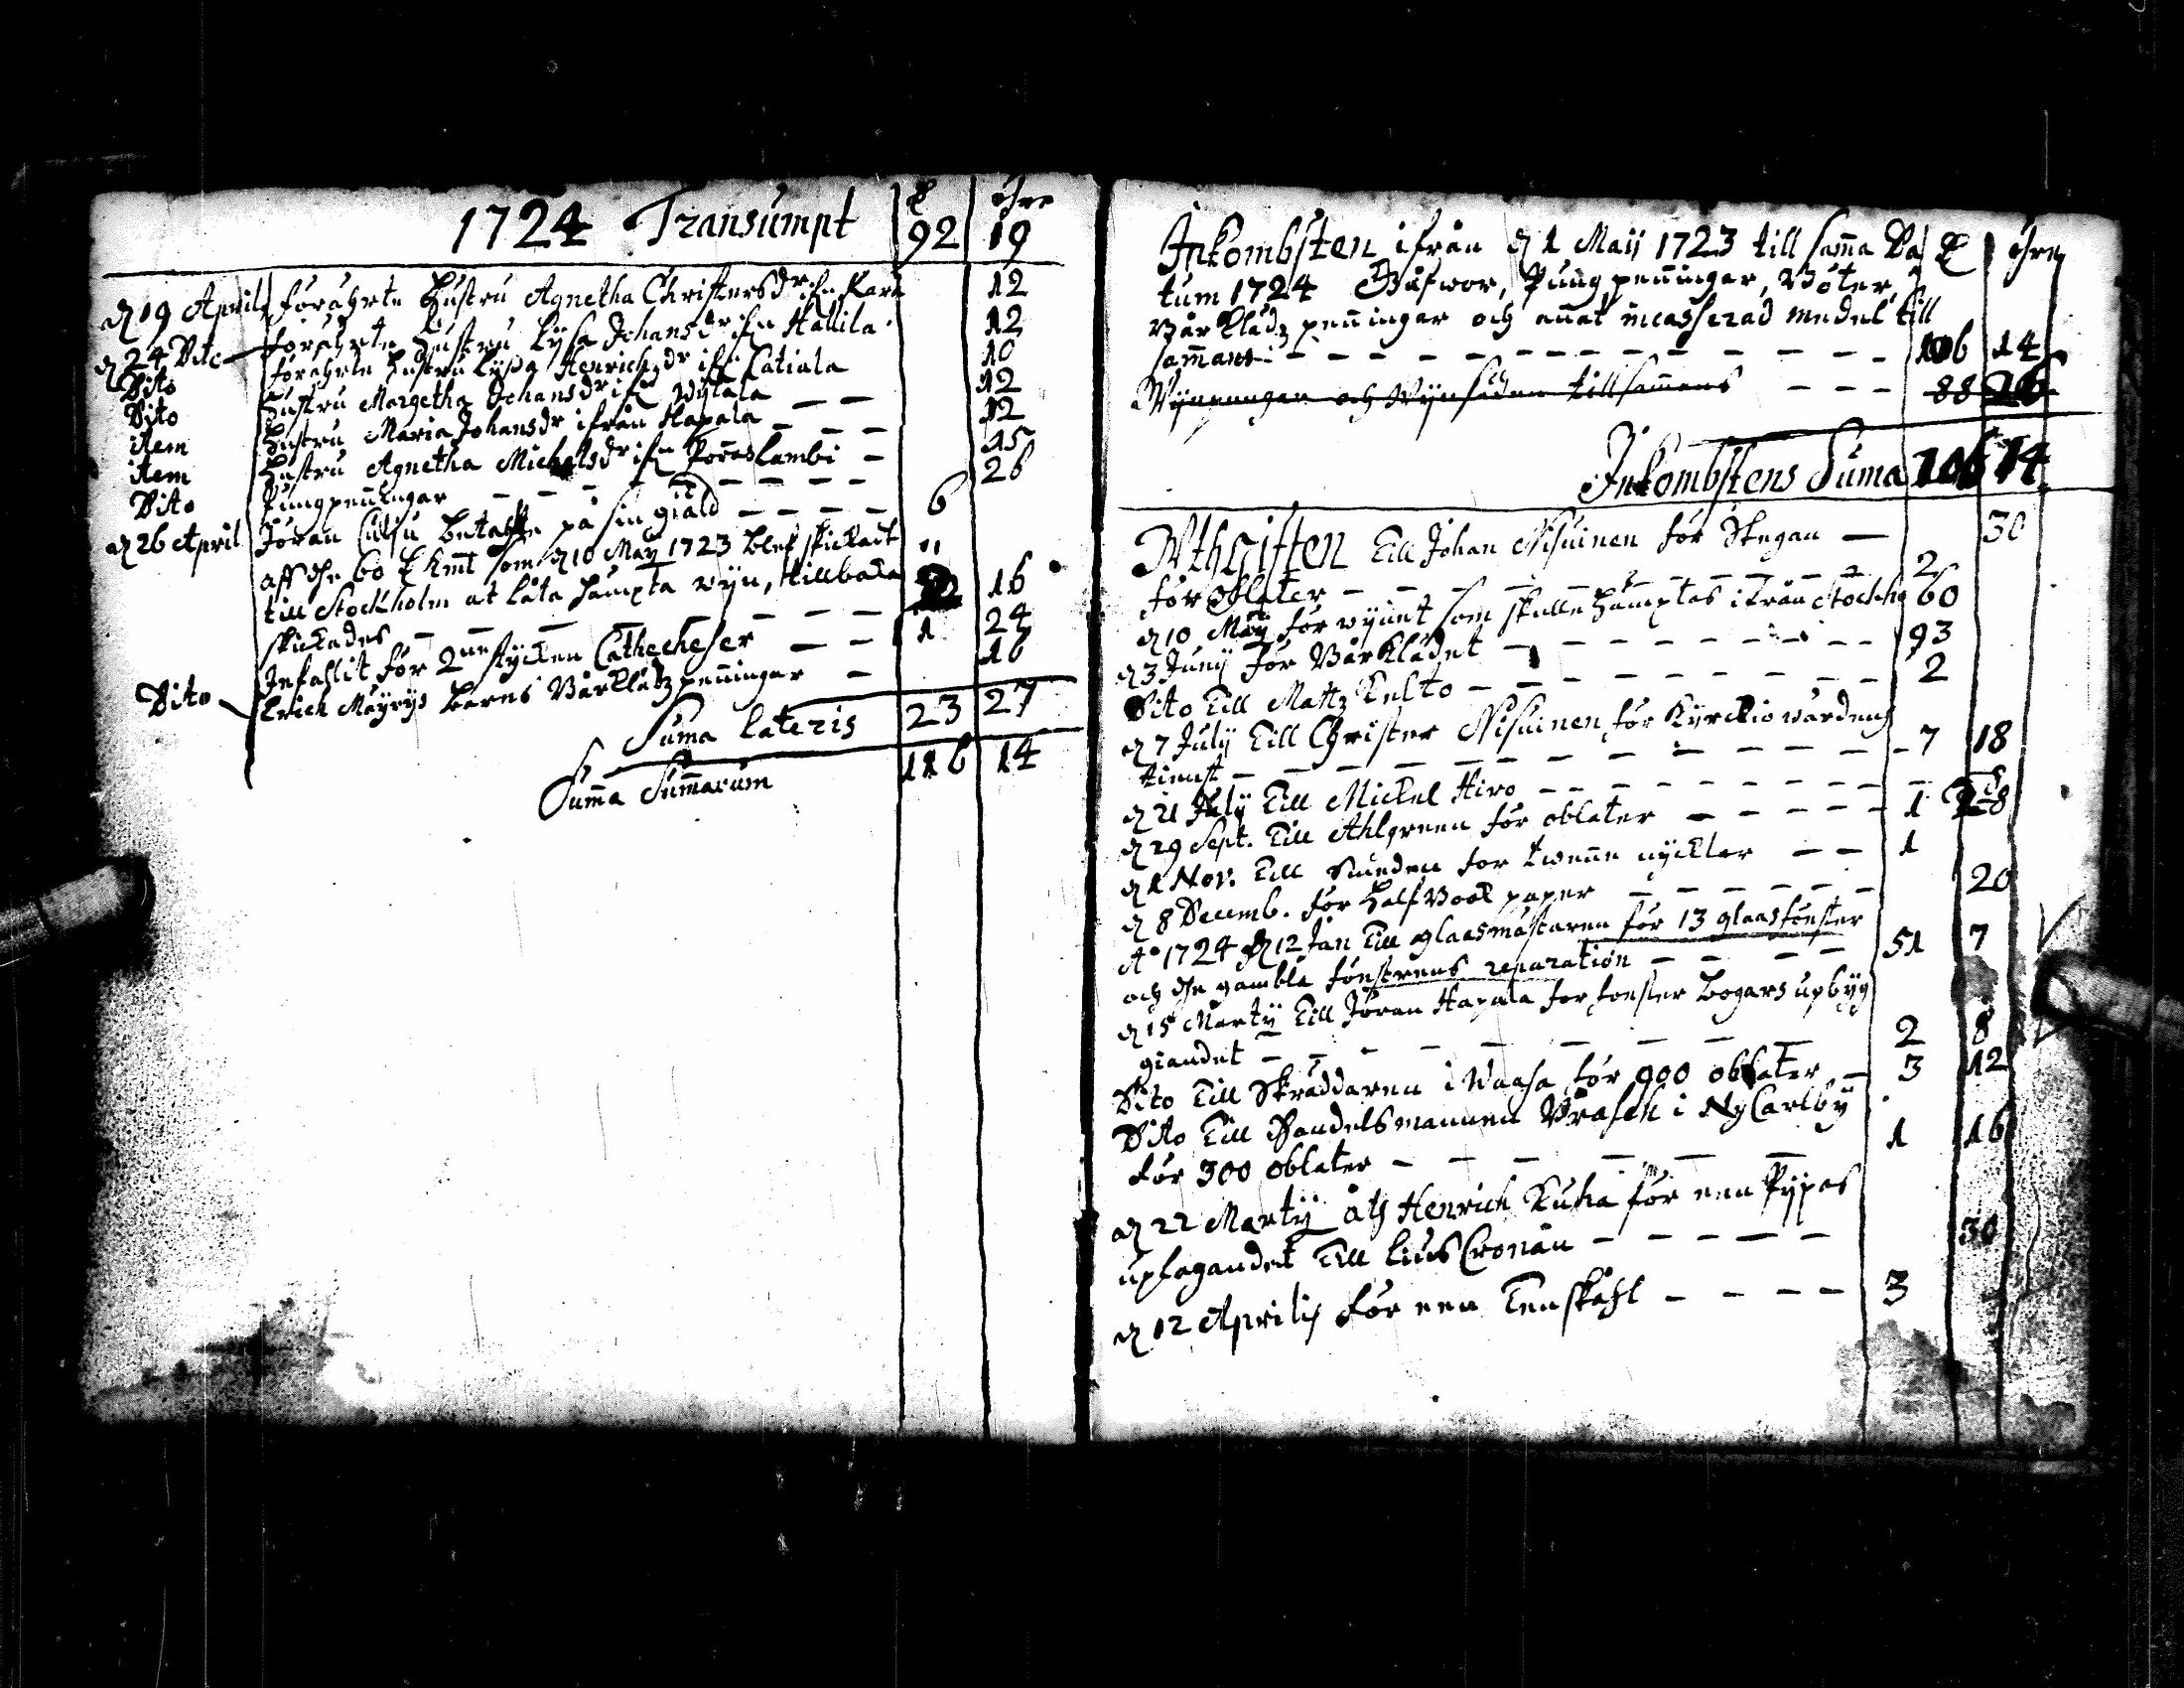 1724 Transumpt 92 19
öhre
d 19 April förährte Hustru Agnetha Christersdr ifr. Kara 12
d 24 Dito förährte Hustru Lysa Johansdr ifr Hallila 12
Dito förährte Hustru Lyssa Henrichzdr ifr Catiala 10
Dito Hustru Margetha Johansdr ifr Wytala 12
Item Hustru Maria Johansdr ifrån Hapala 12
item Hustru Agnetha Michelsdr ifr Poraslambi 15
Dito Pungpenningar 26
d 26 April Jöran Culju betalte på sin giäld 6
aff the 60 Kmt som d 10 May 1723 blef skickadt
till Stockholm at låta hämpta vyn, tillbaka
skickades 16
Infaslit för 2ne stycken Cathecheser 1 24
Dito Erich Mäyrys barns Bårklädz penningar 16
Suma Lateris 23 27
Summa Summarum 116 14
Inkombsten ifrån d 1 Maij 1723 till samma Da öhre
tum 1724 Håfwor, Pungpenningar, Böter,
Bårklädz penningar och annat incasserad medel till
sammans 106 14
Wynpungen och Wynsäden tillsammans 88 26
Inkombstens Suma 106 14
Wthgifften Till Johan Nisuinen för Stegan 30
för Oblater 2
d 10 Maij för vynet som skulle hämptas ifrån Stockho 60
d 3 Junij för Bårklädet 93
Dito Till Mattz Kelto 2
d 7 Julij Till Christer Nisuinen för Kyrckiowärdens
tienst 7 18
d 21 Julij Till Mickel Hiro
d 29 Sept. Till Ahlgreen för oblater 1 28
d 1 Nov. Till Smeden för twenne nycklar 1
d 8 Decemb. för half Book paper 20
A° 1724 d 12 Jan Till glaasmästaren för 13 glaasfönster
och the gambla fönstrens reparation 51 7
d 15 Martij Till Jöran Hapala for fonster bogars upbyg
giandet 2 8
Dito Till Skräddaren i Waasa för 900 oblater 3 12
Dito Till Handelsmannen Brasck i NyCarlby
för 300 oblater 1 16
d 22 Martij åth Henrich Kuha för een Pypas
upsagandet Till Lius Cronan 30
d 12 Aprilis för een Tenskåhl 3